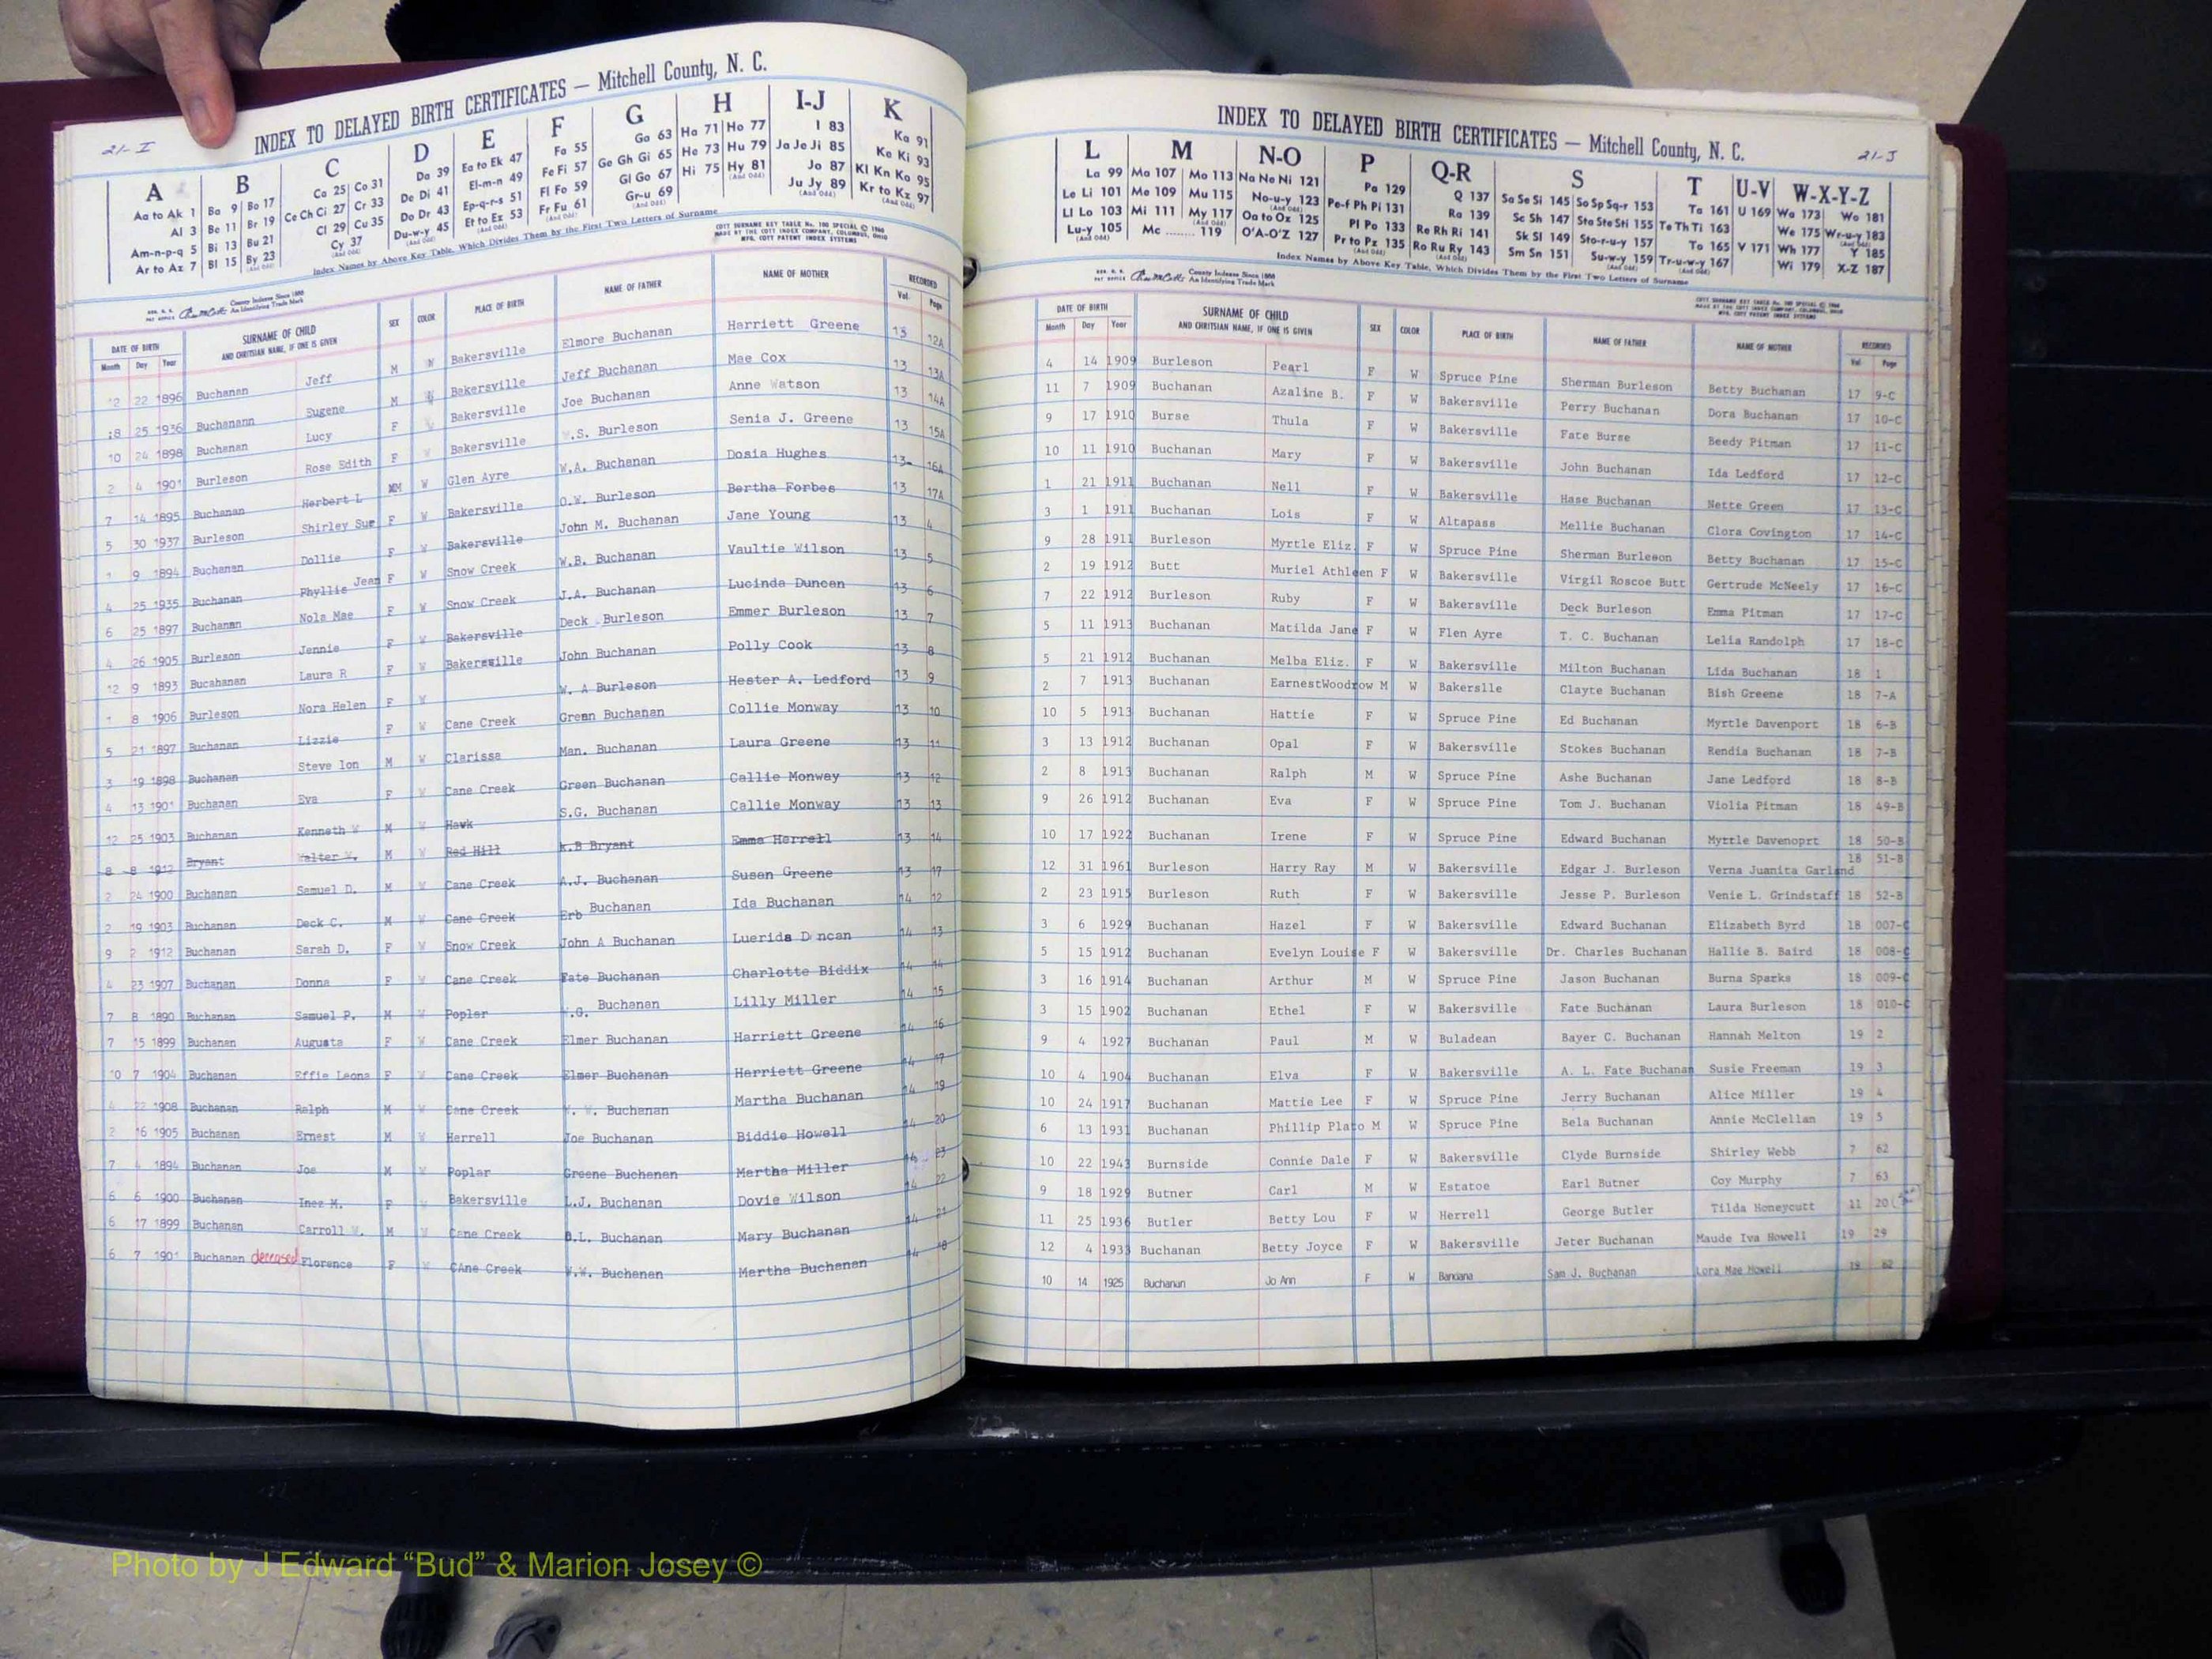 21-I
INDEX TO DELAYED BIRTH CERTIFICATES — Mitchell County, N. C.
A B C D E F G H I-J K
Aa to Ak 1 Ba 9 Bo 17 Ca 25 Co 31 Da 39 Ea to Ek 47 Fa 55 Ga 63 Ha 71 Ho 77 I 83 Ka 91
Al 3 Be 11 Br 19 Ce Ch Ci 27 Cr 33 De Di 41 El-m-n 49 Fe Fi 57 Ge Gh Gi 65 He 73 Hu 79 Ja Je Ji 85 Ke Ki 93
Am-n-p-q 5 Bi 13 Bu 21 Cl 29 Cu 35 Do Dr 43 Ep-q-r-s 51 Fl Fo 59 Gl Go 67 Hi 75 Hy 81 (And Odd) Jo 87 Kl Kn Ko 95
Ar to Az 7 Bl 15 By 23 (And Odd) Cy 37 (And Odd) Du-w-y 45 (And Odd) Et to Ez 53 (And Odd) Fr Fu 61 (And Odd) Gr-u 69 (And Odd) Ju Jy 89 (And Odd) Kr to Kz 97 (And Odd)
Index Names by Above Key Table, Which Divides Them by the First Two Letters of Surname
COTT SURNAME KEY TABLE No. 100 SPECIAL © 1960
MADE BY THE COTT INDEX COMPANY, COLUMBUS, OHIO
MFG. COTT PATENT INDEX SYSTEMS
County Indexes Since 1888
An Identifying Trade Mark
DATE OF BIRTH SURNAME OF CHILD SEX COLOR PLACE OF BIRTH NAME OF FATHER NAME OF MOTHER RECORDED
Month Day Year AND CHRITSIAN NAME, IF ONE IS GIVEN Vol. Page
12 22 1896 Buchanan Jeff M W Bakersville Elmore Buchanan Harriett Greene 13 12A
18 25 1936 Buchanann Sugene M W Bakersville Jeff Buchanan Mae Cox 13 13A
10 24 1898 Buchanan Lucy F W Bakersville Joe Buchanan Anne Watson 13 14A
2 4 1901 Burleson Rose Edith F W Bakersville .S. Burleson Senia J. Greene 13 15A
7 14 1895 Buchanan Herbert L M W Glen Ayre W.A. Buchanan Dosia Hughes 13 16A
5 30 1937 Burleson Shirley Sue F W Bakersville O.W. Burleson Bertha Forbes 13 17A
1 9 1894 Buchanan Dollie F W Bakersville John M. Buchanan Jane Young 13 4
4 25 1935 Buchanan Phyllis Jean F W Snow Creek W.B. Buchanan Vaultie Wilson 13 5
6 25 1897 Buchanan Nola Mae F W Snow Creek J.A. Buchanan Lucinda Duncan 13 6
4 26 1905 Burleson Jennie F W Bakersville Deck Burleson Emmer Burleson 13 7
12 9 1893 Bucahanan Laura R F W Bakersville John Buchanan Polly Cook 13 8
1 8 1906 Burleson Nora Helen F W W. A Burleson Hester A. Ledford 13 9
5 21 1897 Buchanan Lizzie F W Cane Creek Green Buchanan Collie Monway 13 10
3 19 1898 Buchanan Steve Ion M W Clarissa Man. Buchanan Laura Greene 13 11
4 13 1901 Buchanan Eva F W Cane Creek Green Buchanan Callie Monway 13 12
12 25 1903 Buchanan Kenneth W M W Hawk S.G. Buchanan Callie Monway 13 13
8 8 1912 Bryant Walter W. M W Red Hill k.B Bryant Emma Herrell 13 14
2 24 1900 Buchanan Samuel D. M W Cane Creek A.J. Buchanan Susan Greene 13 17
2 19 1903 Buchanan Deck C. M W Cane Creek Erb Buchanan Ida Buchanan 14 12
9 2 1912 Buchanan Sarah D. F W Snow Creek John A Buchanan Luerida D ncan 14 13
4 23 1907 Buchanan Donna F W Cane Creek Fate Buchanan Charlotte Biddix 14 14
7 8 1890 Buchanan Samuel P. M W Poplar .G. Buchanan Lilly Miller 14 15
7 15 1899 Buchanan Augusta F W Cane Creek Elmer Buchanan Harriett Greene 14 16
10 7 1904 Buchanan Effie Leona F W Cane Creek Elmer Buchanan Harriett Greene 14 17
22 1908 Buchanan Ralph M W Cane Creek W. W. Buchanan Martha Buchanan 14 19
2 16 1905 Buchanan Ernest M W Herrell Joe Buchanan Biddie Howell 14 20
7 4 1894 Buchanan Joe M W Poplar Greene Buchanan Martha Miller 14 23
6 6 1900 Buchanan Inez M. F W Bakersville L.J. Buchanan Dovie Wilson 14 22
6 17 1899 Buchanan Carroll W. M W Cane Creek B.L. Buchanan Mary Buchanan 14 21
6 7 1901 Buchanan deceased Florence F W CAne Creek W.W. Buchanan Martha Buchanan 14 18
21-J
INDEX TO DELAYED BIRTH CERTIFICATES — Mitchell County, N. C.
L M N-O P Q-R S T U-V W-X-Y-Z
La 99 Ma 107 Mo 113 Na Ne Ni 121 Pa 129 Q 137 Sa Se Si 145 So Sp Sq-r 153 Ta 161 U 169 Wa 173 Wo 181
Le Li 101 Me 109 Mu 115 No-u-y 123 (And Odd) Pe-f Ph Pi 131 Ra 139 Sc Sh 147 Sta Ste Sti 155 Te Th Ti 163 We 175 Wr-u-y 183 (And Odd)
Ll Lo 103 Mi 111 My 117 (And Odd) Oa to Oz 125 Pl Po 133 Re Rh Ri 141 Sk Sl 149 Sto-r-u-y 157 To 165 V 171 Wh 177 Y 185
Lu-y 105 Mc ........ 119 O'A-O'Z 127 Pr to Pz 135 (And Odd) Ro Ru Ry 143 (And Odd) Sm Sn 151 Su-w-y 159 (And Odd) Tr-u-w-y 167 (And Odd) Wi 179 X-Z 187
Index Names by Above Key Table, Which Divides Them by the First Two Letters of Surname
County Indexes Since 1888
An Identifying Trade Mark
COTT SURNAME KEY TABLE No. 100 SPECIAL © 1960
MADE BY THE COTT INDEX COMPANY, COLUMBUS, OHIO
MFG. COTT PATENT INDEX SYSTEMS
DATE OF BIRTH SURNAME OF CHILD SEX COLOR PLACE OF BIRTH NAME OF FATHER NAME OF MOTHER RECORDED
Month Day Year AND CHRITSIAN NAME, IF ONE IS GIVEN Vol. Page
4 14 1909 Burleson Pearl F W Spruce Pine Sherman Burleson Betty Buchanan 17 9-C
11 7 1909 Buchanan Azaline B. F W Bakersville Perry Buchanan Dora Buchanan 17 10-C
9 17 1910 Burse Thula F W Bakersville Fate Burse Beedy Pitman 17 11-C
10 11 1910 Buchanan Mary F W Bakersville John Buchanan Ida Ledford 17 12-C
1 21 1911 Buchanan Nell F W Bakersville Hase Buchanan Nette Green 17 13-C
3 1 1911 Buchanan Lois F W Altapass Mellie Buchanan Clora Covington 17 14-C
9 28 1911 Burleson Myrtle Eliz. F W Spruce Pine Sherman Burleson Betty Buchanan 17 15-C
2 19 1912 Butt Muriel Athleen F W Bakersville Virgil Roscoe Butt Gertrude McNeely 17 16-C
7 22 1912 Burleson Ruby F W Bakersville Deck Burleson Emma Pitman 17 17-C
5 11 1913 Buchanan Matilda Jane F W Flen Ayre T. C. Buchanan Lelia Randolph 17 18-C
5 21 1912 Buchanan Melba Eliz. F W Bakersville Milton Buchanan Lida Buchanan 18 1
2 7 1913 Buchanan EarnestWoodrow M W Bakerslle Clayte Buchanan Bish Greene 18 7-A
10 5 1913 Buchanan Hattie F W Spruce Pine Ed Buchanan Myrtle Davenport 18 6-B
3 13 1912 Buchanan Opal F W Bakersville Stokes Buchanan Rendia Buchanan 18 7-B
2 8 1913 Buchanan Ralph M W Spruce Pine Ashe Buchanan Jane Ledford 18 8-B
9 26 1912 Buchanan Eva F W Spruce Pine Tom J. Buchanan Violia Pitman 18 49-B
10 17 1922 Buchanan Irene F W Spruce Pine Edward Buchanan Myrtle Davenoprt 18 50-B
12 31 1961 Burleson Harry Ray M W Bakersville Edgar J. Burleson Verna Juanita Garland 18 51-B
2 23 1915 Burleson Ruth F W Bakersville Jesse P. Burleson Venie L. Grindstaff 18 52-B
3 6 1929 Buchanan Hazel F W Bakersville Edward Buchanan Elizabeth Byrd 18 007-C
5 15 1912 Buchanan Evelyn Louise F W Bakersville Dr. Charles Buchanan Hallie B. Baird 18 008-C
3 16 1914 Buchanan Arthur M W Spruce Pine Jason Buchanan Burna Sparks 18 009-C
3 15 1902 Buchanan Ethel F W Bakersville Fate Buchanan Laura Burleson 18 010-C
9 4 1927 Buchanan Paul M W Buladean Bayer C. Buchanan Hannah Melton 19 2
10 4 1904 Buchanan Elva F W Bakersville A. L. Fate Buchanan Susie Freeman 19 3
10 24 1917 Buchanan Mattie Lee F W Spruce Pine Jerry Buchanan Alice Miller 19 4
6 13 1931 Buchanan Phillip Plato M W Spruce Pine Bela Buchanan Annie McClellan 19 5
10 22 1943 Burnside Connie Dale F W Bakersville Clyde Burnside Shirley Webb 7 62
9 18 1929 Butner Carl M W Estatoe Earl Butner Coy Murphy 7 63
11 25 1936 Butler Betty Lou F W Herrell George Butler Tilda Honeycutt 11 20
12 4 1933 Buchanan Betty Joyce F W Bakersville Jeter Buchanan Maude Iva Howell 19 29
10 14 1925 Buchanan Jo Ann F W Bandana Sam J. Buchanan Lora Mae Howell 19 62
Photo by J Edward “Bud” & Marion Josey ©